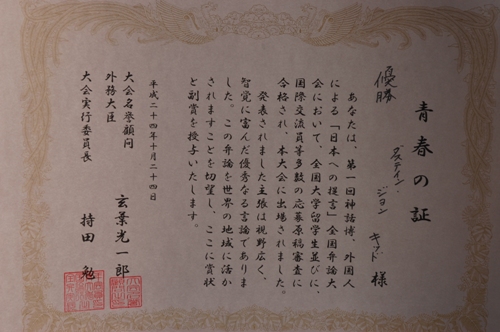 青春の証
優勝
ダスティン・ジョン キッド 様
あなたは、第一回神話博、外国人
による「日本への提言」全国弁論大
会において、全国大学留学生並びに、
国際交流員等多数の応募原稿審査に
合格され、本大会に出場されました。
発表されました主張は視野広く、
智覚に富んだ優秀なる言論でありま
した。この弁論を世界の地域に活か
されますことを切望し、ここに賞状
と副賞を授与いたします。
平成二十四年十月二十四日
大会名誉顧問
外務大臣 玄葉光一郎
大会実行委員長 持田 勉